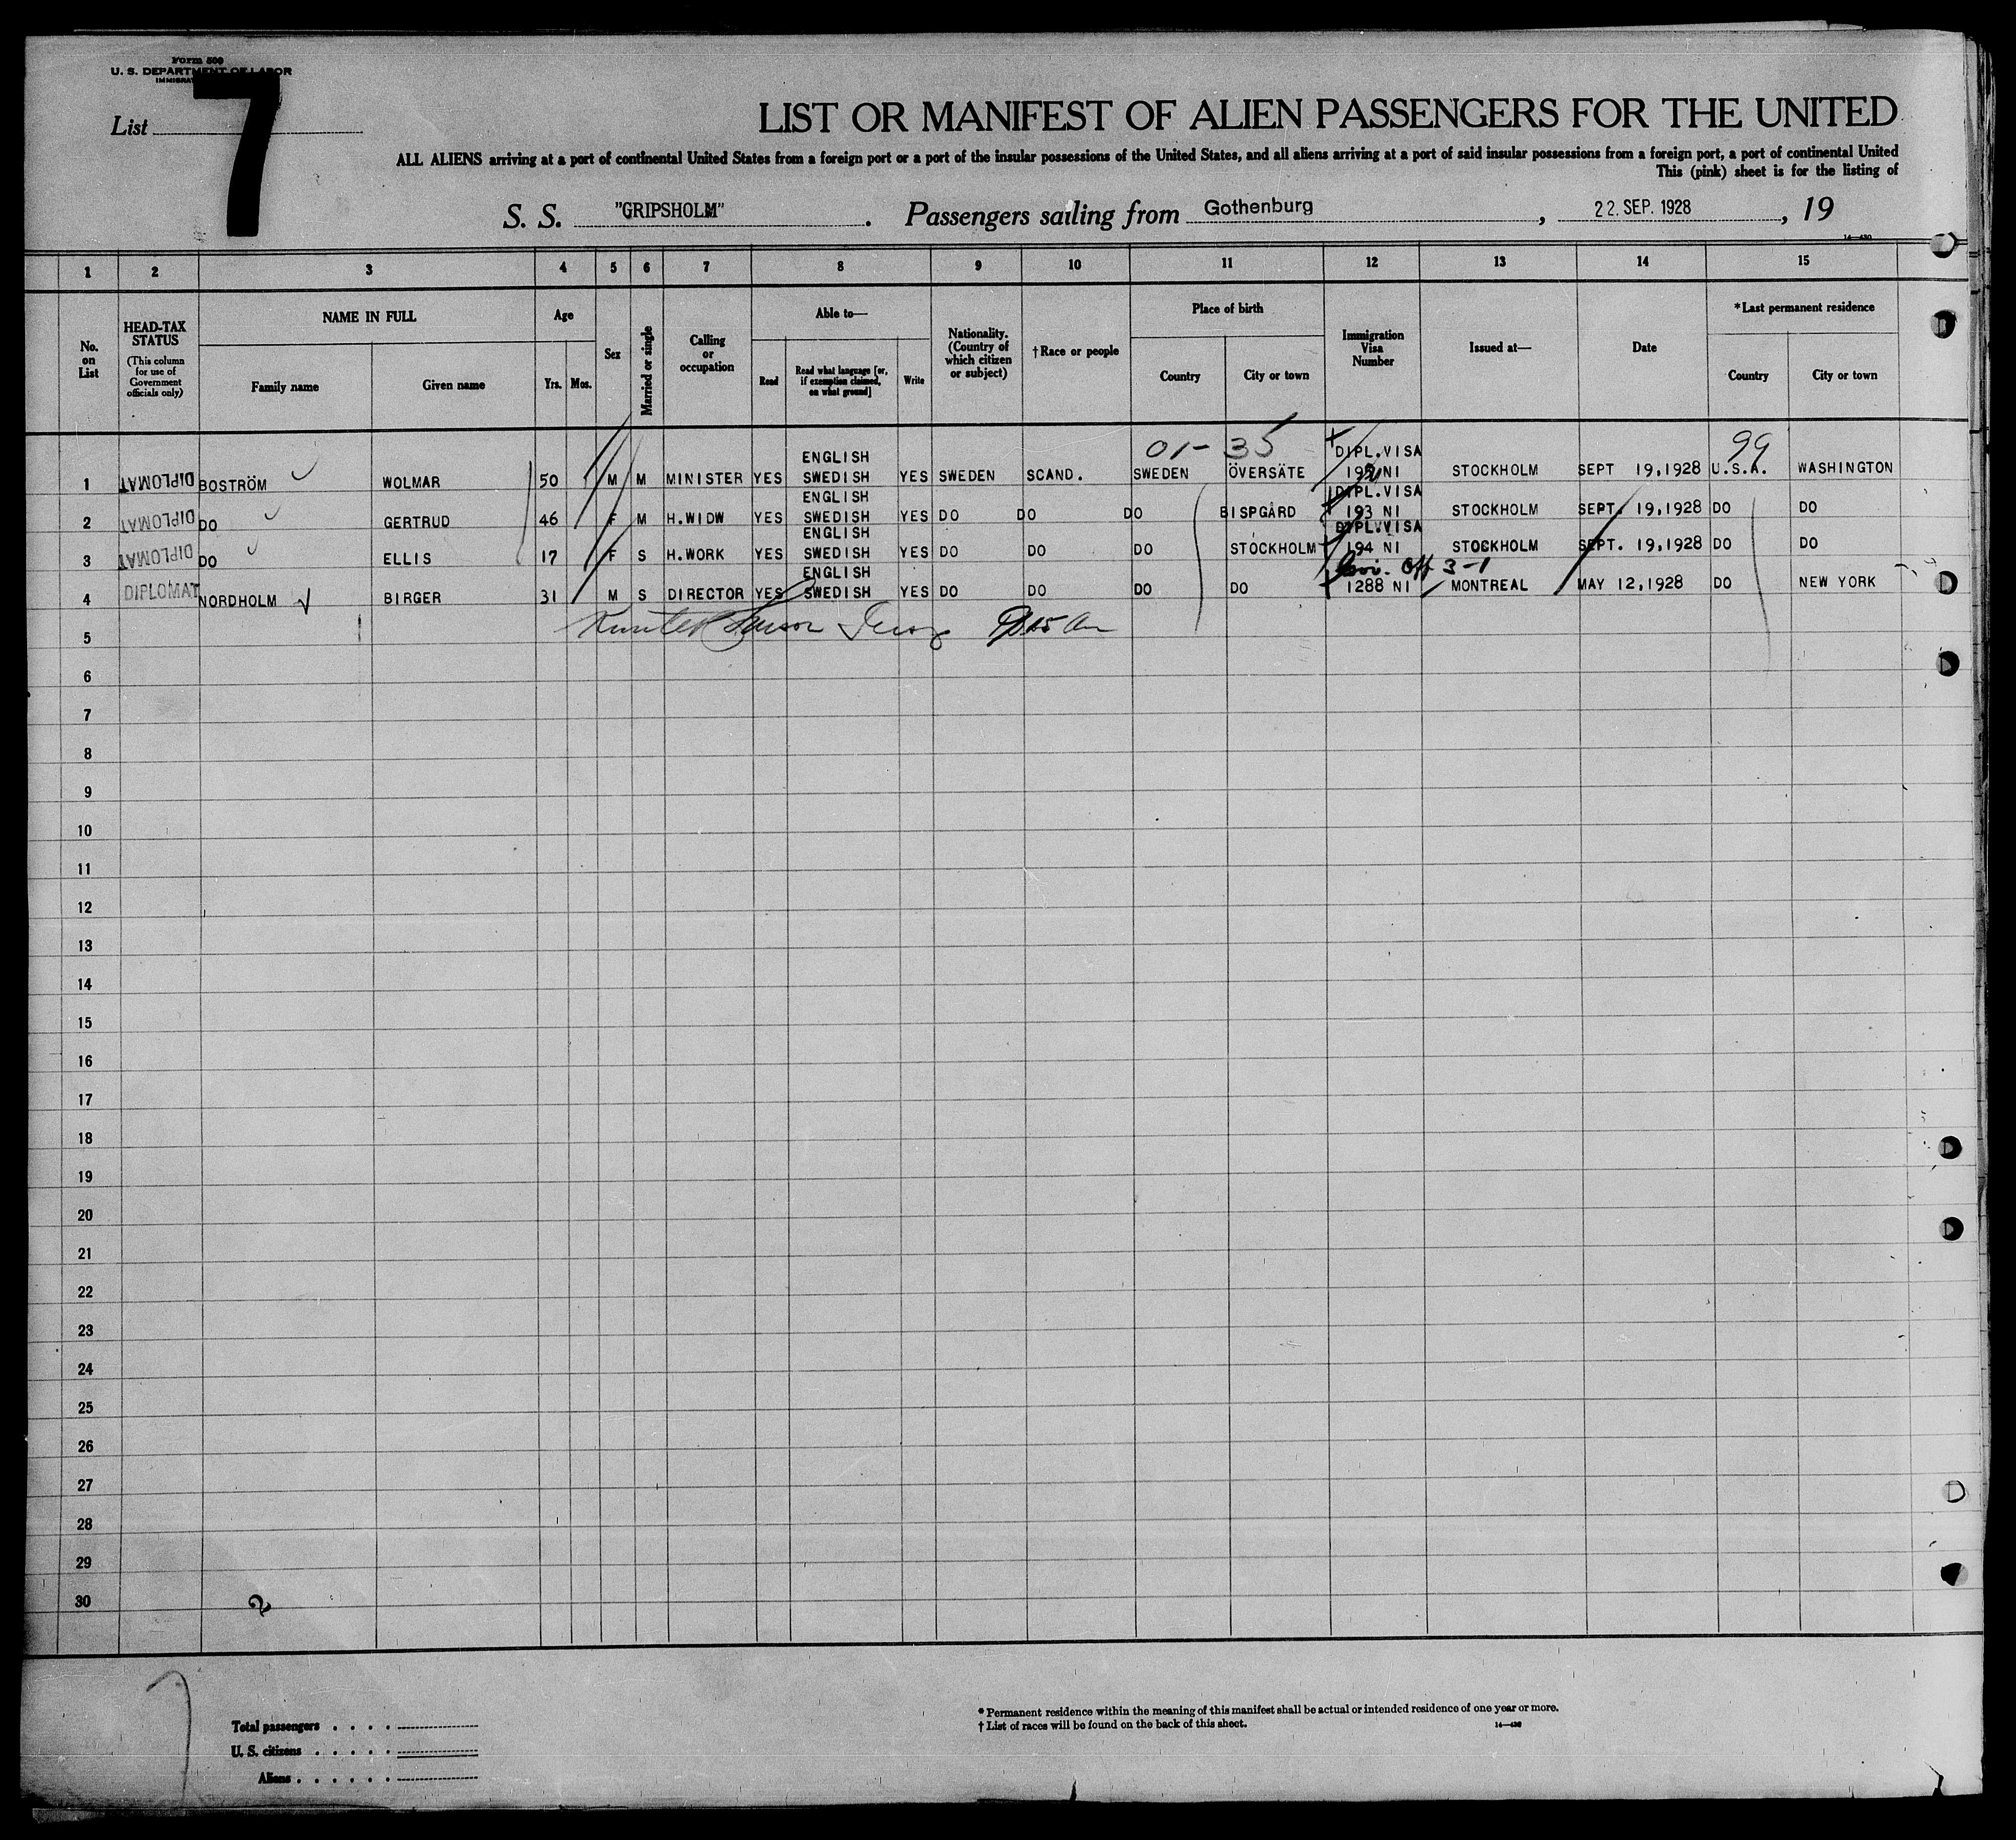 Form 500
U. S. DEPARTMENT OF LABOR
List 7
LIST OR MANIFEST OF ALIEN PASSENGERS FOR THE UNITED
ALL ALIENS arriving at a port of continental United States from a foreign port or a port of the insular possessions of the United States, and all aliens arriving at a port of said insular possessions from a foreign port, a port of continental United
This (pink) sheet is for the listing of
S. S. "GRIPSHOLM". Passengers sailing from Gothenburg, 22. SEP. 1928, 19
1 2 3 4 5 6 7 8 9 10 11 12 13 14 15
No. on List
HEAD-TAX STATUS (This column for use of Government officials only)
NAME IN FULL
Family name Given name
Age
Yrs. Mos.
Sex
Married or single
Calling or occupation
Able to—
Read Read what language [or, if exemption claimed, on what ground] Write
Nationality. (Country of which citizen or subject)
†Race or people
Place of birth
Country City or town
Immigration Visa Number
Issued at—
Date
*Last permanent residence
Country City or town
01-35 99
1 DIPLOMAT BOSTRÖM WOLMAR 50 M M MINISTER YES ENGLISH SWEDISH YES SWEDEN SCAND. SWEDEN ÖVERSÄTE DIPL.VISA 192 NI STOCKHOLM SEPT 19,1928 U.S.A. WASHINGTON
2 DIPLOMAT DO GERTRUD 46 F M H.WIDW YES ENGLISH SWEDISH YES DO DO DO BISPGÅRD DIPL.VISA 193 NI STOCKHOLM SEPT. 19,1928 DO DO
3 DIPLOMAT DO ELLIS 17 F S H.WORK YES ENGLISH SWEDISH YES DO DO DO STOCKHOLM DIPL.VISA 194 NI STOCKHOLM SEPT. 19,1928 DO DO
4 DIPLOMAT NORDHOLM BIRGER 31 M S DIRECTOR YES ENGLISH SWEDISH YES DO DO DO DO Off 3-1 1288 NI MONTREAL MAY 12,1928 DO NEW YORK
5
6
7
8
9
10
11
12
13
14
15
16
17
18
19
20
21
22
23
24
25
26
27
28
29
30
2
Total passengers
U. S. citizens
Aliens
* Permanent residence within the meaning of this manifest shall be actual or intended residence of one year or more.
† List of races will be found on the back of this sheet.